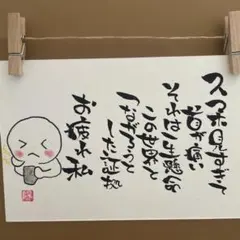 スマホ見すぎて
首が痛い
それは一生懸命
この世界と
つながろうと
した証拠
お疲れ 私